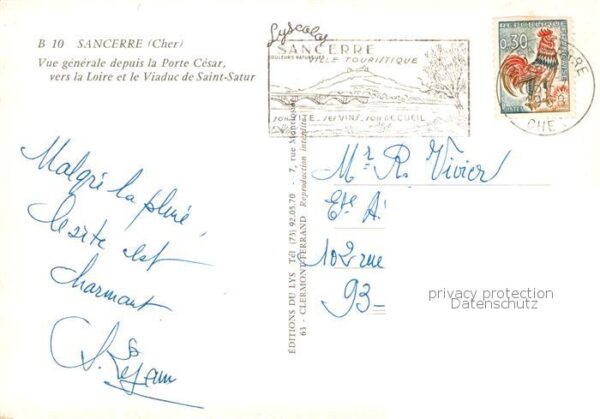 B 10 SANCERRE (Cher)
Vue générale depuis la Porte César,
vers la Loire et le Viaduc de Saint-Satur
Lyscolor
COULEURS NATURELLES
SANCERRE
VILLE TOURISTIQUE
SON SITE - SES VINS - SON ACCUEIL
0,30
CHER
Malgré la pluie,
le site est
charmant
ÉDITIONS DU LYS Tél (73) 92.05.70 - 7, rue Montlosier
63 - CLERMONT-FERRAND Reproduction interdite
Mr R. Vivier
Ets A
102 rue
93 -
privacy protection
Datenschutz